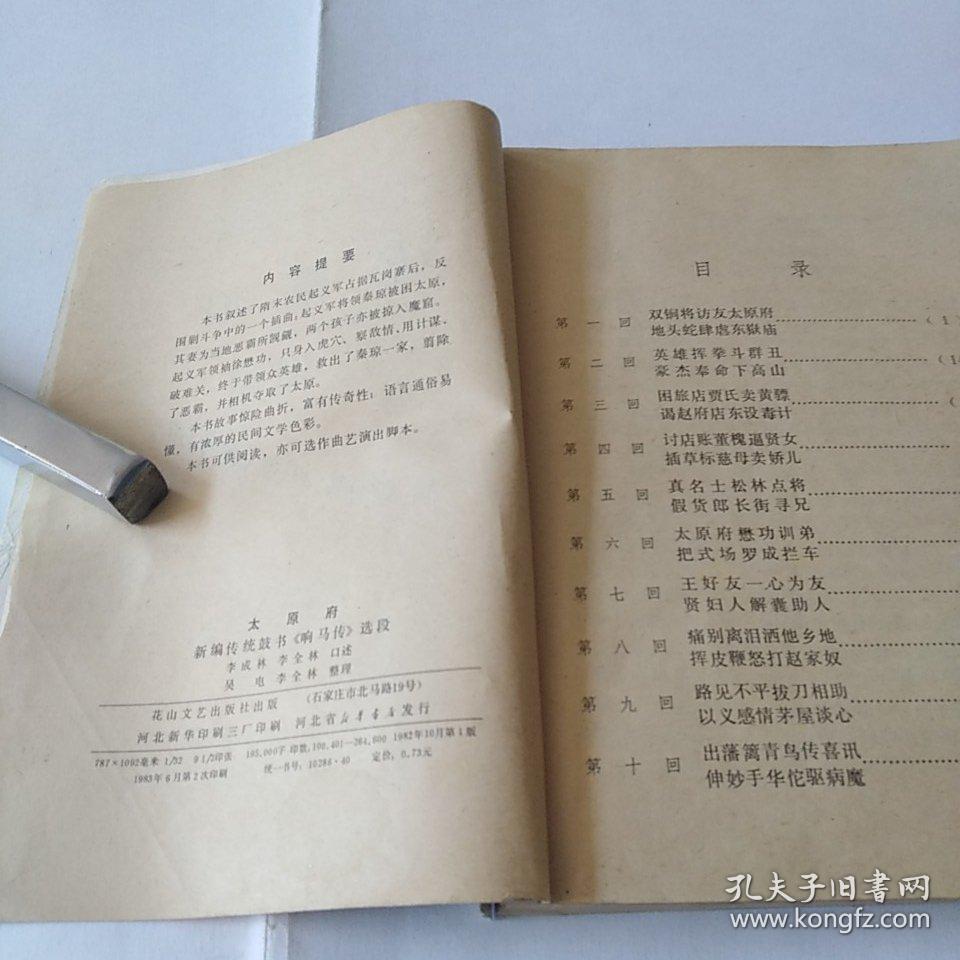 内容提要
本书叙述了隋末农民起义军占据瓦岗寨后，反
围剿斗争中的一个插曲：起义军将领秦琼被困太原，
其妻为当地恶霸所觊觎，两个孩子亦被掠入魔窟。
起义军领袖徐懋功，只身入虎穴，察敌情，用计谋，
破难关，终于带领众英雄，救出了秦琼一家，翦除
了恶霸，并相机夺取了太原。
本书故事惊险曲折，富有传奇性；语言通俗易
懂，有浓厚的民间文学色彩。
本书可供阅读，亦可选作曲艺演出脚本。
太原府
新编传统鼓书《响马传》选段
李成林 李全林 口述
吴电 李全林 整理
花山文艺出版社出版 （石家庄市北马路19号）
河北新华印刷三厂印刷 河北省新华书店发行
787×1092毫米 1/32 9 1/2印张 195,000字 印数：100,401—264,600 1982年10月第1版
1983年6月第2次印刷 统一书号：10286·40 定价：0.73元
目录
第一回 双锏将访友太原府
地头蛇肆虐东嶽庙 （1）
第二回 英雄挥拳斗群丑
豪杰奉命下高山
第三回 困旅店贾氏卖黄骠
谒赵府店东设毒计
第四回 讨店账董槐逼贤女
插草标慈母卖娇儿
第五回 真名士松林点将
假货郎长街寻兄
第六回 太原府懋功训弟
把式场罗成拦车
第七回 王好友一心为友
贤妇人解囊助人
第八回 痛别离泪洒他乡地
挥皮鞭怒打赵家奴
第九回 路见不平拔刀相助
以义感情茅屋谈心
第十回 出藩篱青鸟传喜讯
伸妙手华佗驱病魔
孔夫子旧书网
www.kongfz.com